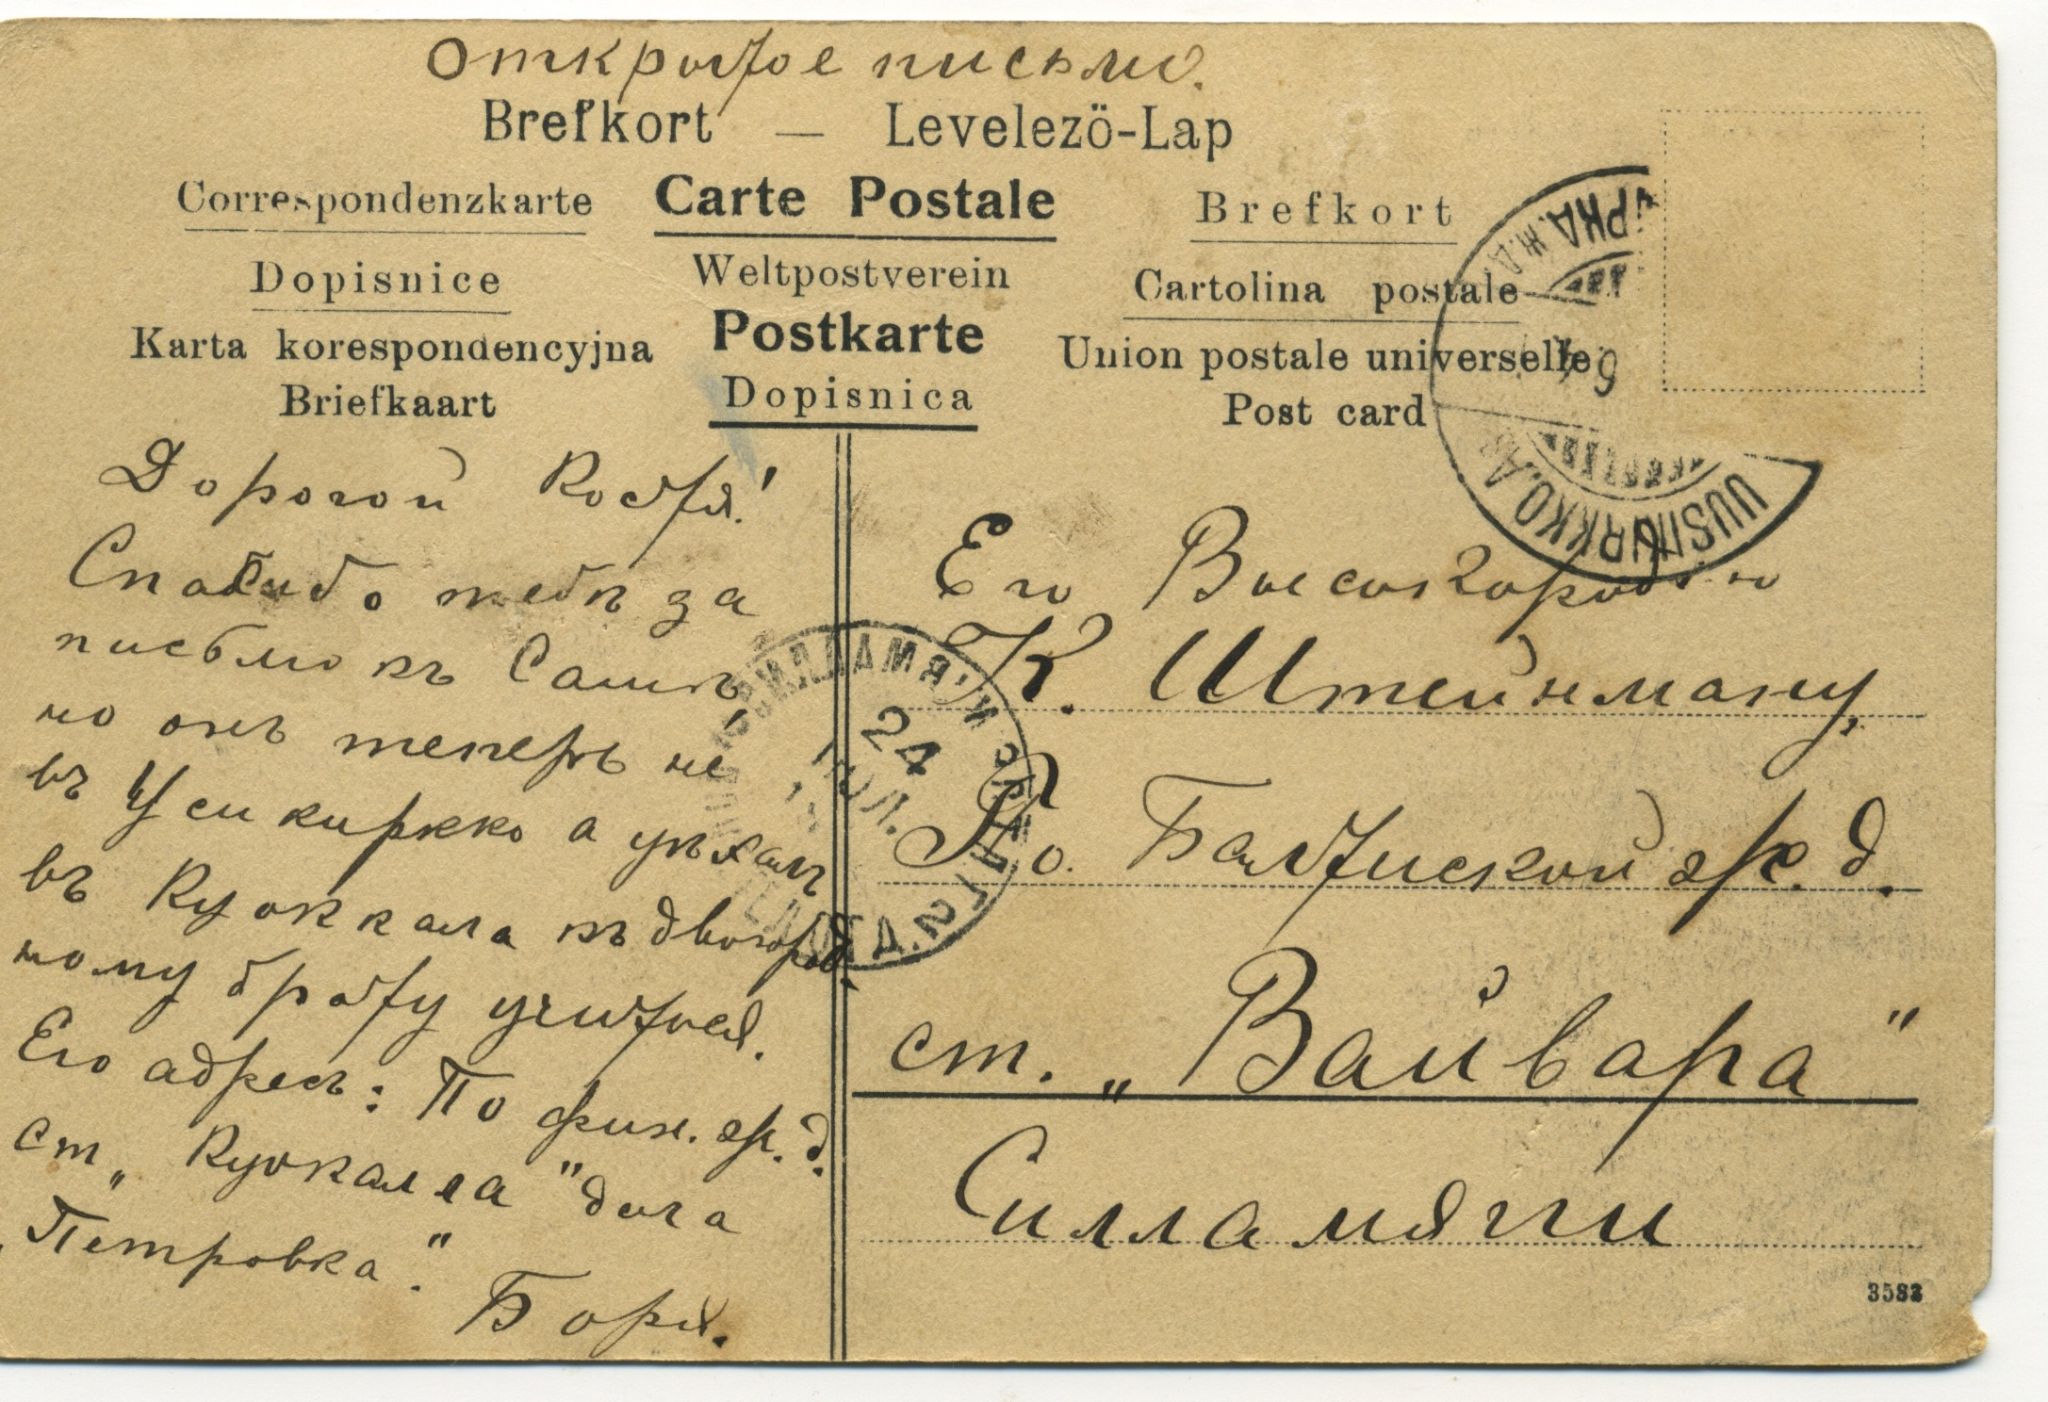 Открытое письмо.
Brefkort — Levelezö-Lap
Correspondenzkarte
Carte Postale
Brefkort
Dopisnice
Weltpostverein
Cartolina postale
Karta korespondencyjna
Postkarte
Union postale universelle
Briefkaart
Dopisnica
Post card
Дорогой Костя!
Спасибо тебѣ за
письмо къ Сашѣ,
но онъ теперь не
въ Усикиркко а уѣхалъ
въ Куоккала къ двоюрод
ному брату учиться.
Его адресъ: По фин. ж. д.
ст. „Куоккалла" дача
„Петровка".
Боря.
Его Высокородію
К. Штейнману,
По Балтійской ж. д.
ст. „Вайвара"
Силламяги
3582
UUSIKIRKKO
24
ІЮЛ.